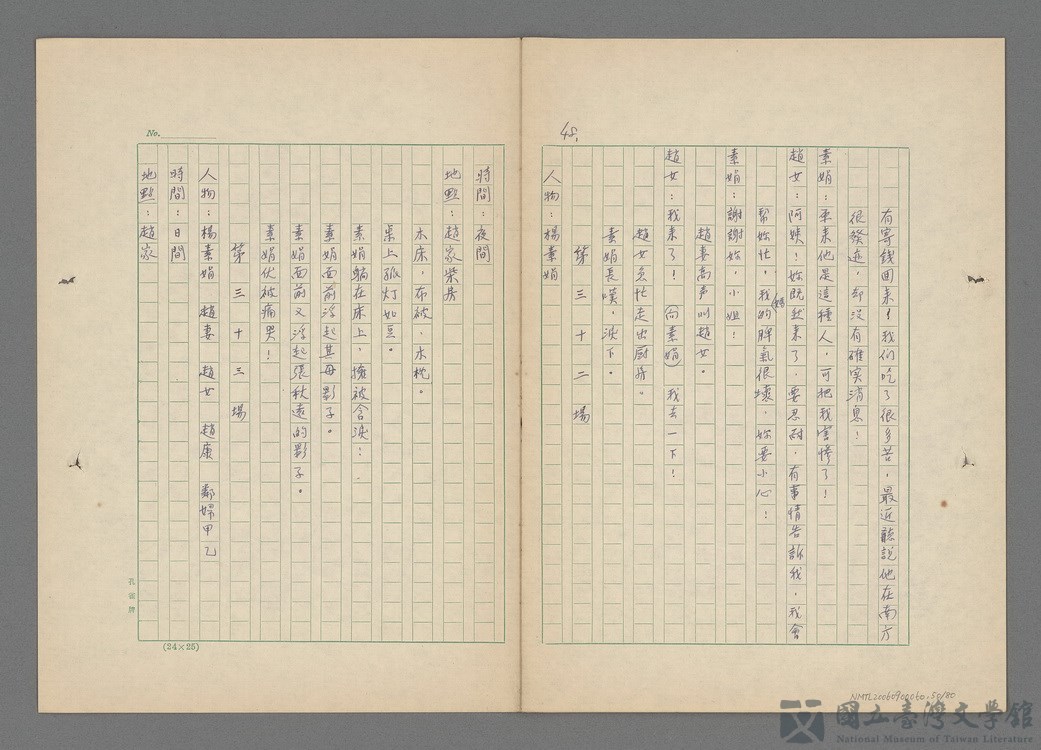 48.
有寄錢回来！我们吃了很多苦，最近聽說他在南方
很發迹，却没有確实消息！
素娟：原来他是這種人，可把我害慘了！
趙女：阿姨！妳既然来了，要忍耐，有事情告訴我，我會
幫妳忙，我媽的脾氣很壞，妳要小心！
素娟：謝謝妳，小姐！
趙妻高声叫趙女。
趙女：我来了！（向素娟）我去一下！
趙女急忙走出厨房。
素娟長嘆，淚下。
第三十二場
人物：楊素娟
時間：夜間
地點：趙家柴房
木床，布被，木枕。
桌上孤灯如豆。
素娟躺在床上，擁被含淚：
素娟面前浮起其母影子。
素娟面前又浮起張秋遠的影子。
素娟伏被痛哭！
第三十三場
人物：楊素娟 趙妻 趙女 趙康 鄰婦甲乙
時間：日間
地點：趙家
No.
(24×25)
孔雀牌
NMTL20060900060.50/80
國立臺灣文學館
National Museum of Taiwan Literature